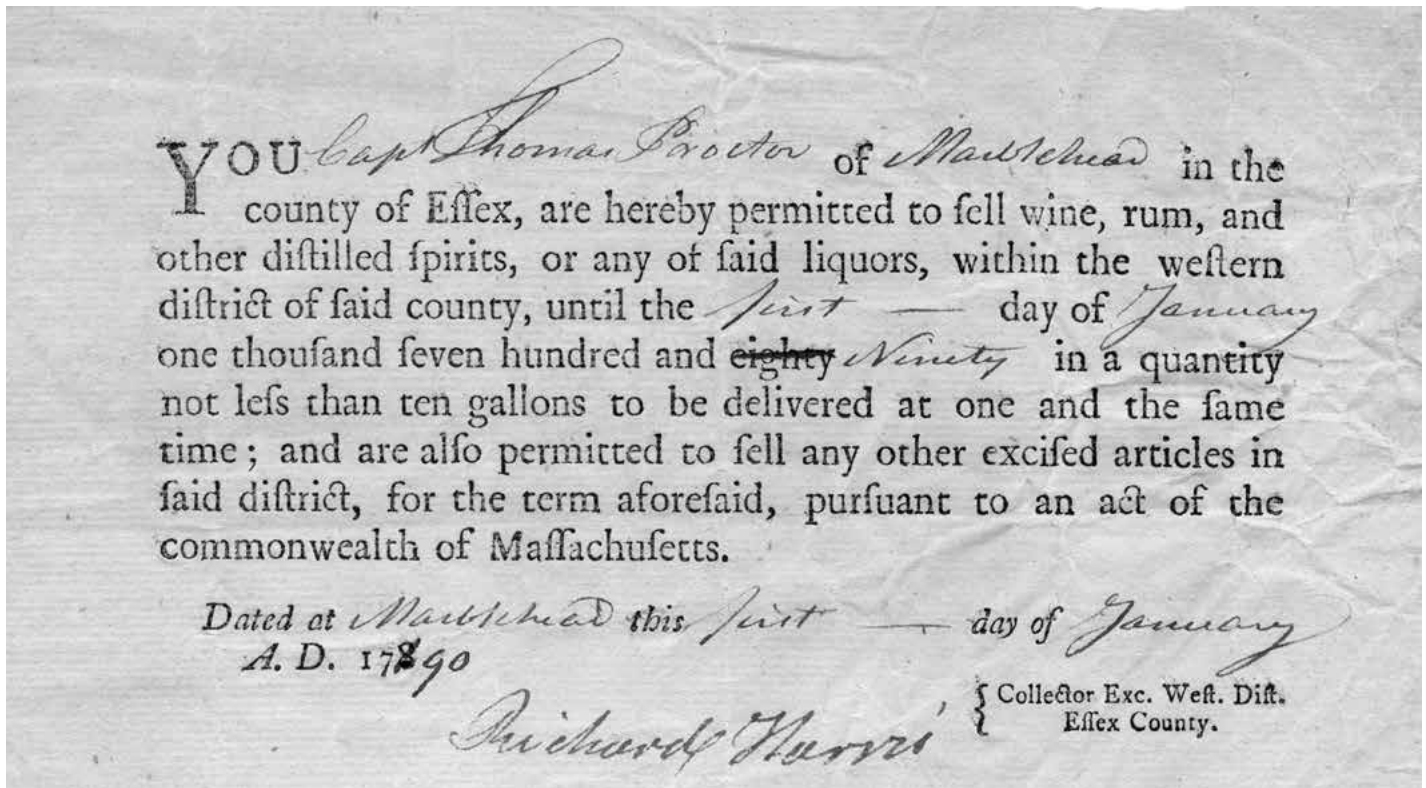 YOU Capt Thomas Proctor of Marblehead in the
county of Eſſex, are hereby permitted to ſell wine, rum, and
other diſtilled ſpirits, or any of ſaid liquors, within the weſtern
diſtrict of ſaid county, until the first — day of January
one thouſand ſeven hundred and eighty Ninety in a quantity
not leſs than ten gallons to be delivered at one and the ſame
time; and are alſo permitted to ſell any other exciſed articles in
ſaid diſtrict, for the term aforeſaid, purſuant to an act of the
commonwealth of Maſſachuſetts.
Dated at Marblehead this first — day of January
A. D. 17890
Collector Exc. Weſt. Diſt.
Eſſex County.
Richard Harris